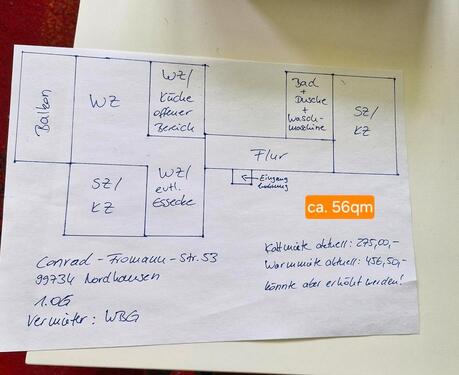 Balkon
WZ
WZ/
Küche
offener
Bereich
Bad
+
Dusche
+
Wasch-
maschine
SZ/
KZ
Flur
SZ/
KZ
WZ/
evtl.
Essecke
Eingang
Wohnung
ca. 56qm
Conrad-Fromann-Str. 53
99734 Nordhausen
1.OG
Vermieter: WBG
Kaltmiete aktuell: 275,00,-
Warmmiete aktuell: 456,50,-
könnte aber erhöht werden!